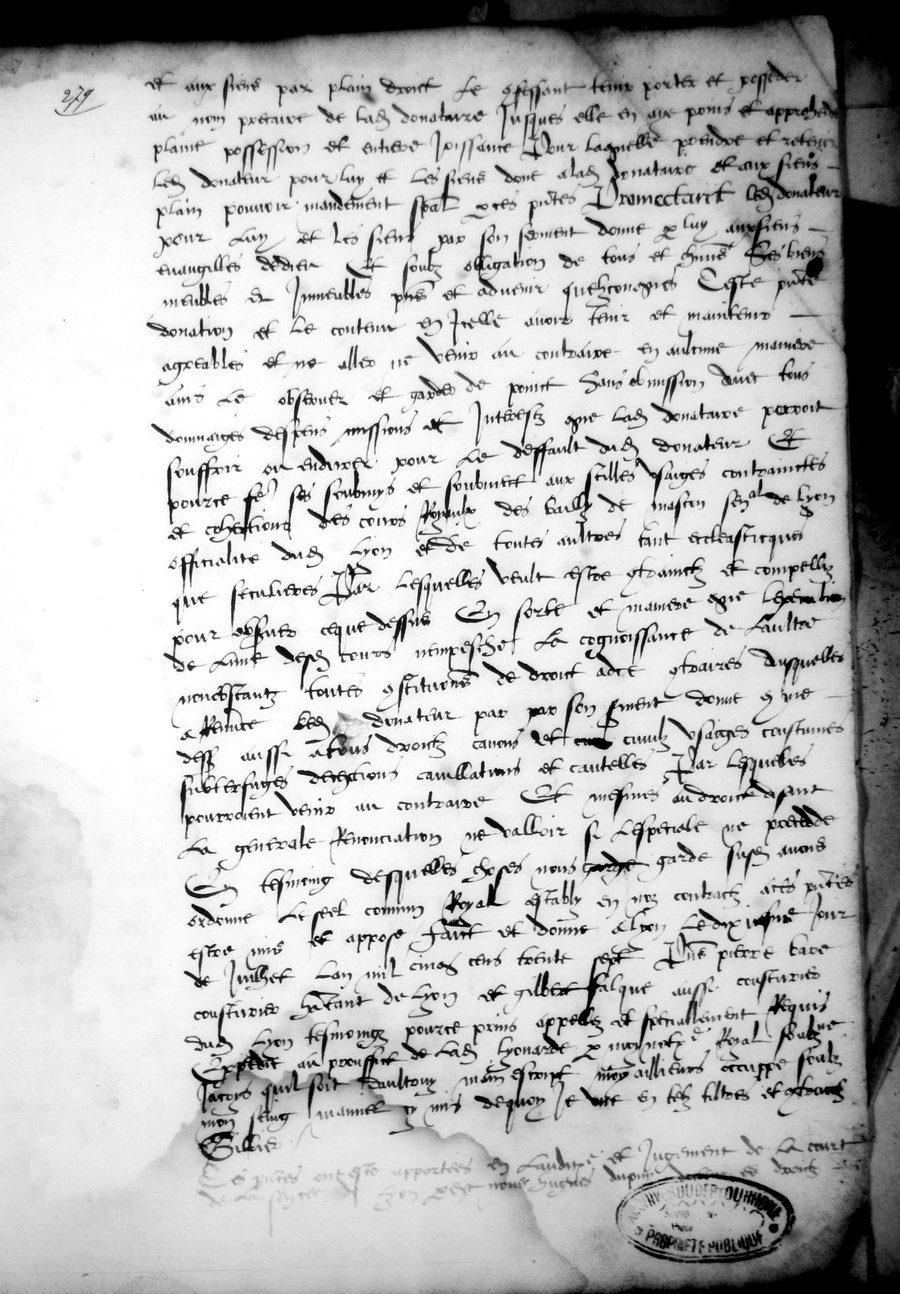 279
et aux siens par plain droict Le confessant tenir porter et posseder
au nom precaire de lad donataire Jusques elle en aye prins et apprehende
plaine possession et entiere Joissance Pour laquelle prendre et retenir
Led donateur pour luy et les siens done a lad donataire et aux siens
plain pouvoir mandement spal p ces pntes Promectant led donateur
pour Luy et les siens par son serment donne p luy aux sains
evangilles de dieu Et soubz obligation de tous et Ses biens
meubles et Immeubles pns et advenir quelzconques Ceste pnte
donation et Le contenu en Icelle avoir tenir et maintenir
agreables et ne aller ne venir au contraire en aulcune maniere
ains Le observer et garder de poinct Sans obmission avec tous
dommaiges despens missions et Interestz que lad donataire porroit
souffrir ou endurer pour Le deffault dud donateur Et
pource ses soubmys et soubmect aux stilles usaiges contrainctes
et cohertions des cours Royaulx des bailly de mascon senal de Lyon
officialite dud Lyon et de toutes aultres tant eccleasticques
que seculieres Par Lesquelles veult estre contrainctz et compellez
pour observer ce que dessus En sorte et maniere que lexecution
de Lune desd cours nempesche La cognoissance de Laultre
nonobstantz toutes constitutions de droict a ce contraires Ausquelles
a Renunce Led donateur par par son serment donne que
dess aussi a tous droictz canons et civilz usaiges coustumes
subterfuges deceptions cavillations et cautelles Par Lesquelles
pourroient venir au contraire Et mesmes au droict disant
La generale Renonciation ne valloir si Lespeciale ne precede
En tesmoing desquelles choses nous garde susd avons
ordonne Le seel commun Royal estably en noz contractz a ces pntes
estre mis et appose Faict et donne a Lyon Le dixiesme Jour
de Juillet Lan mil cinq cens trente sept Pns pierre bare
cousturier habitant de Lyon et gilbert falque aussi cousturier
dud Lyon tesmoingz pource prins appellez et speciallement Requis
Expedie au prouffict de Lad Lyonarde p moy notre Royal soubzne
Jacoys quil soit daultruy main escript moy ailleurs occuppe soubz
mon seing manuel cy mis dequoy Je use en telz tiltres et contractz
Gillier
Ces pntes ont este apportees en Lauditoire et Jugement de La court
de La Lyon hugues dupuis docteur es droictz
PROPRIETE PUBLIQUE